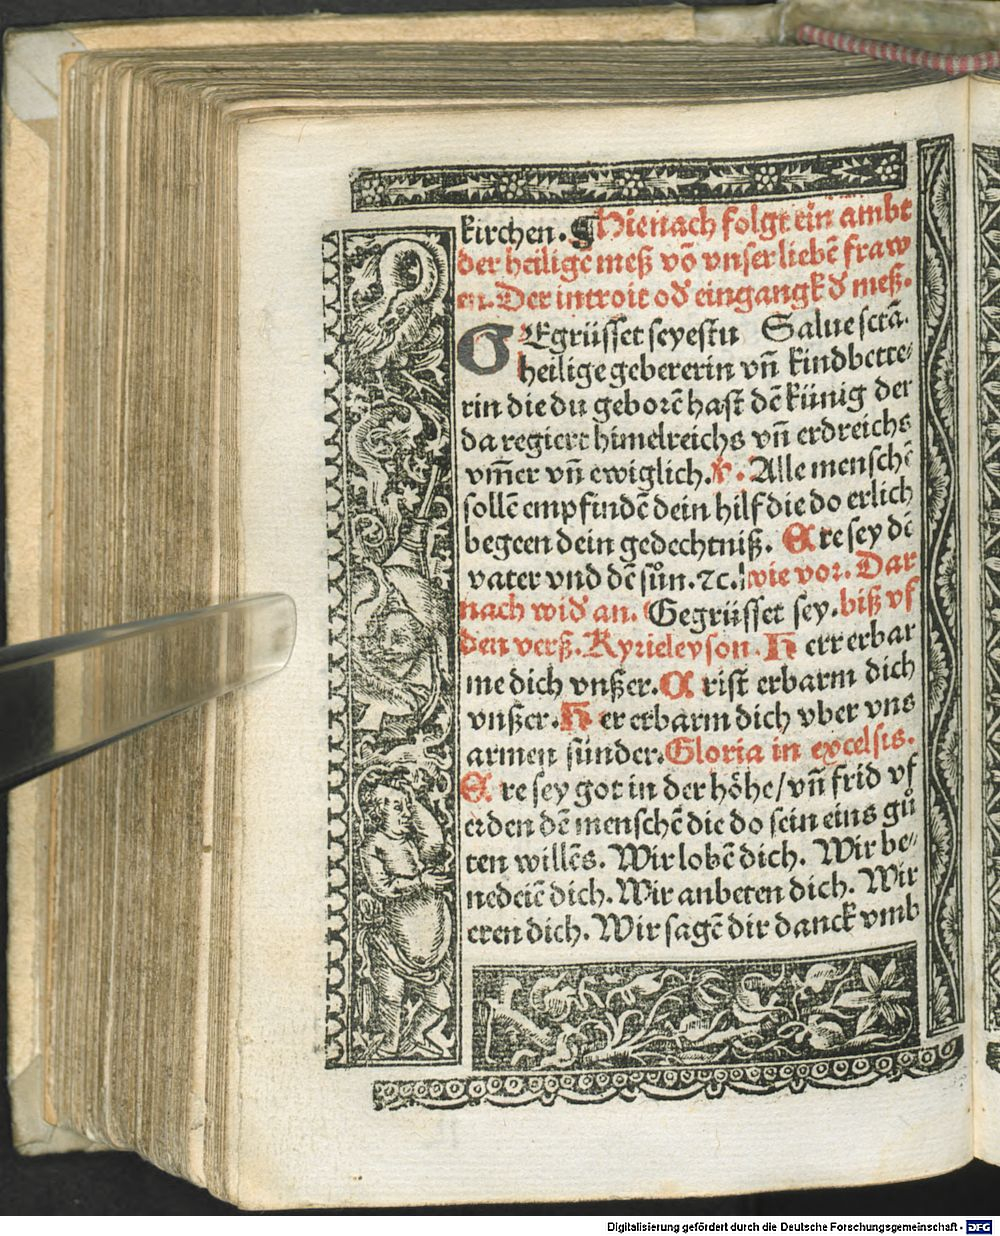 kirchen. ¶ Hienach folgt ein ambt
der heilige meß vō vnser liebē fraw
en. Der introit od̕ eingangk d̕ meß.
GEgrüsset seyestu Salue sctā.
heilige gebererin vn̄ kindbette⸗
rin die du geborē hast dē künig der
da regiert himelreichs vn̄ erdreichs
vm̄er vn̄ ewiglich. ℣. Alle menschē
sollē empfindē dein hilf die do erlich
begeen dein gedechtniß. Ere sey dē
vater vnd dē sůn. ⁊c. wie vor. Dar
nach wid̕ an. Gegrüsset sey. biß vf
den verß. Kyrieleyson. Herr erbar
me dich vnßer. Crist erbarm dich
vnßer. Her erbarm dich vber vns
armen sünder. Gloria in excelsis.
Ere sey got in der höhe/ vn̄ frid vf
erden dē menschē die do sein eins gů
ten willēs. Wir lobē dich. Wir be⸗
nedeiē dich. Wir anbeten dich. Wir
eren dich. Wir sagē dir danck vmb
Digitalisierung gefördert durch die Deutsche Forschungsgemeinschaft - DFG